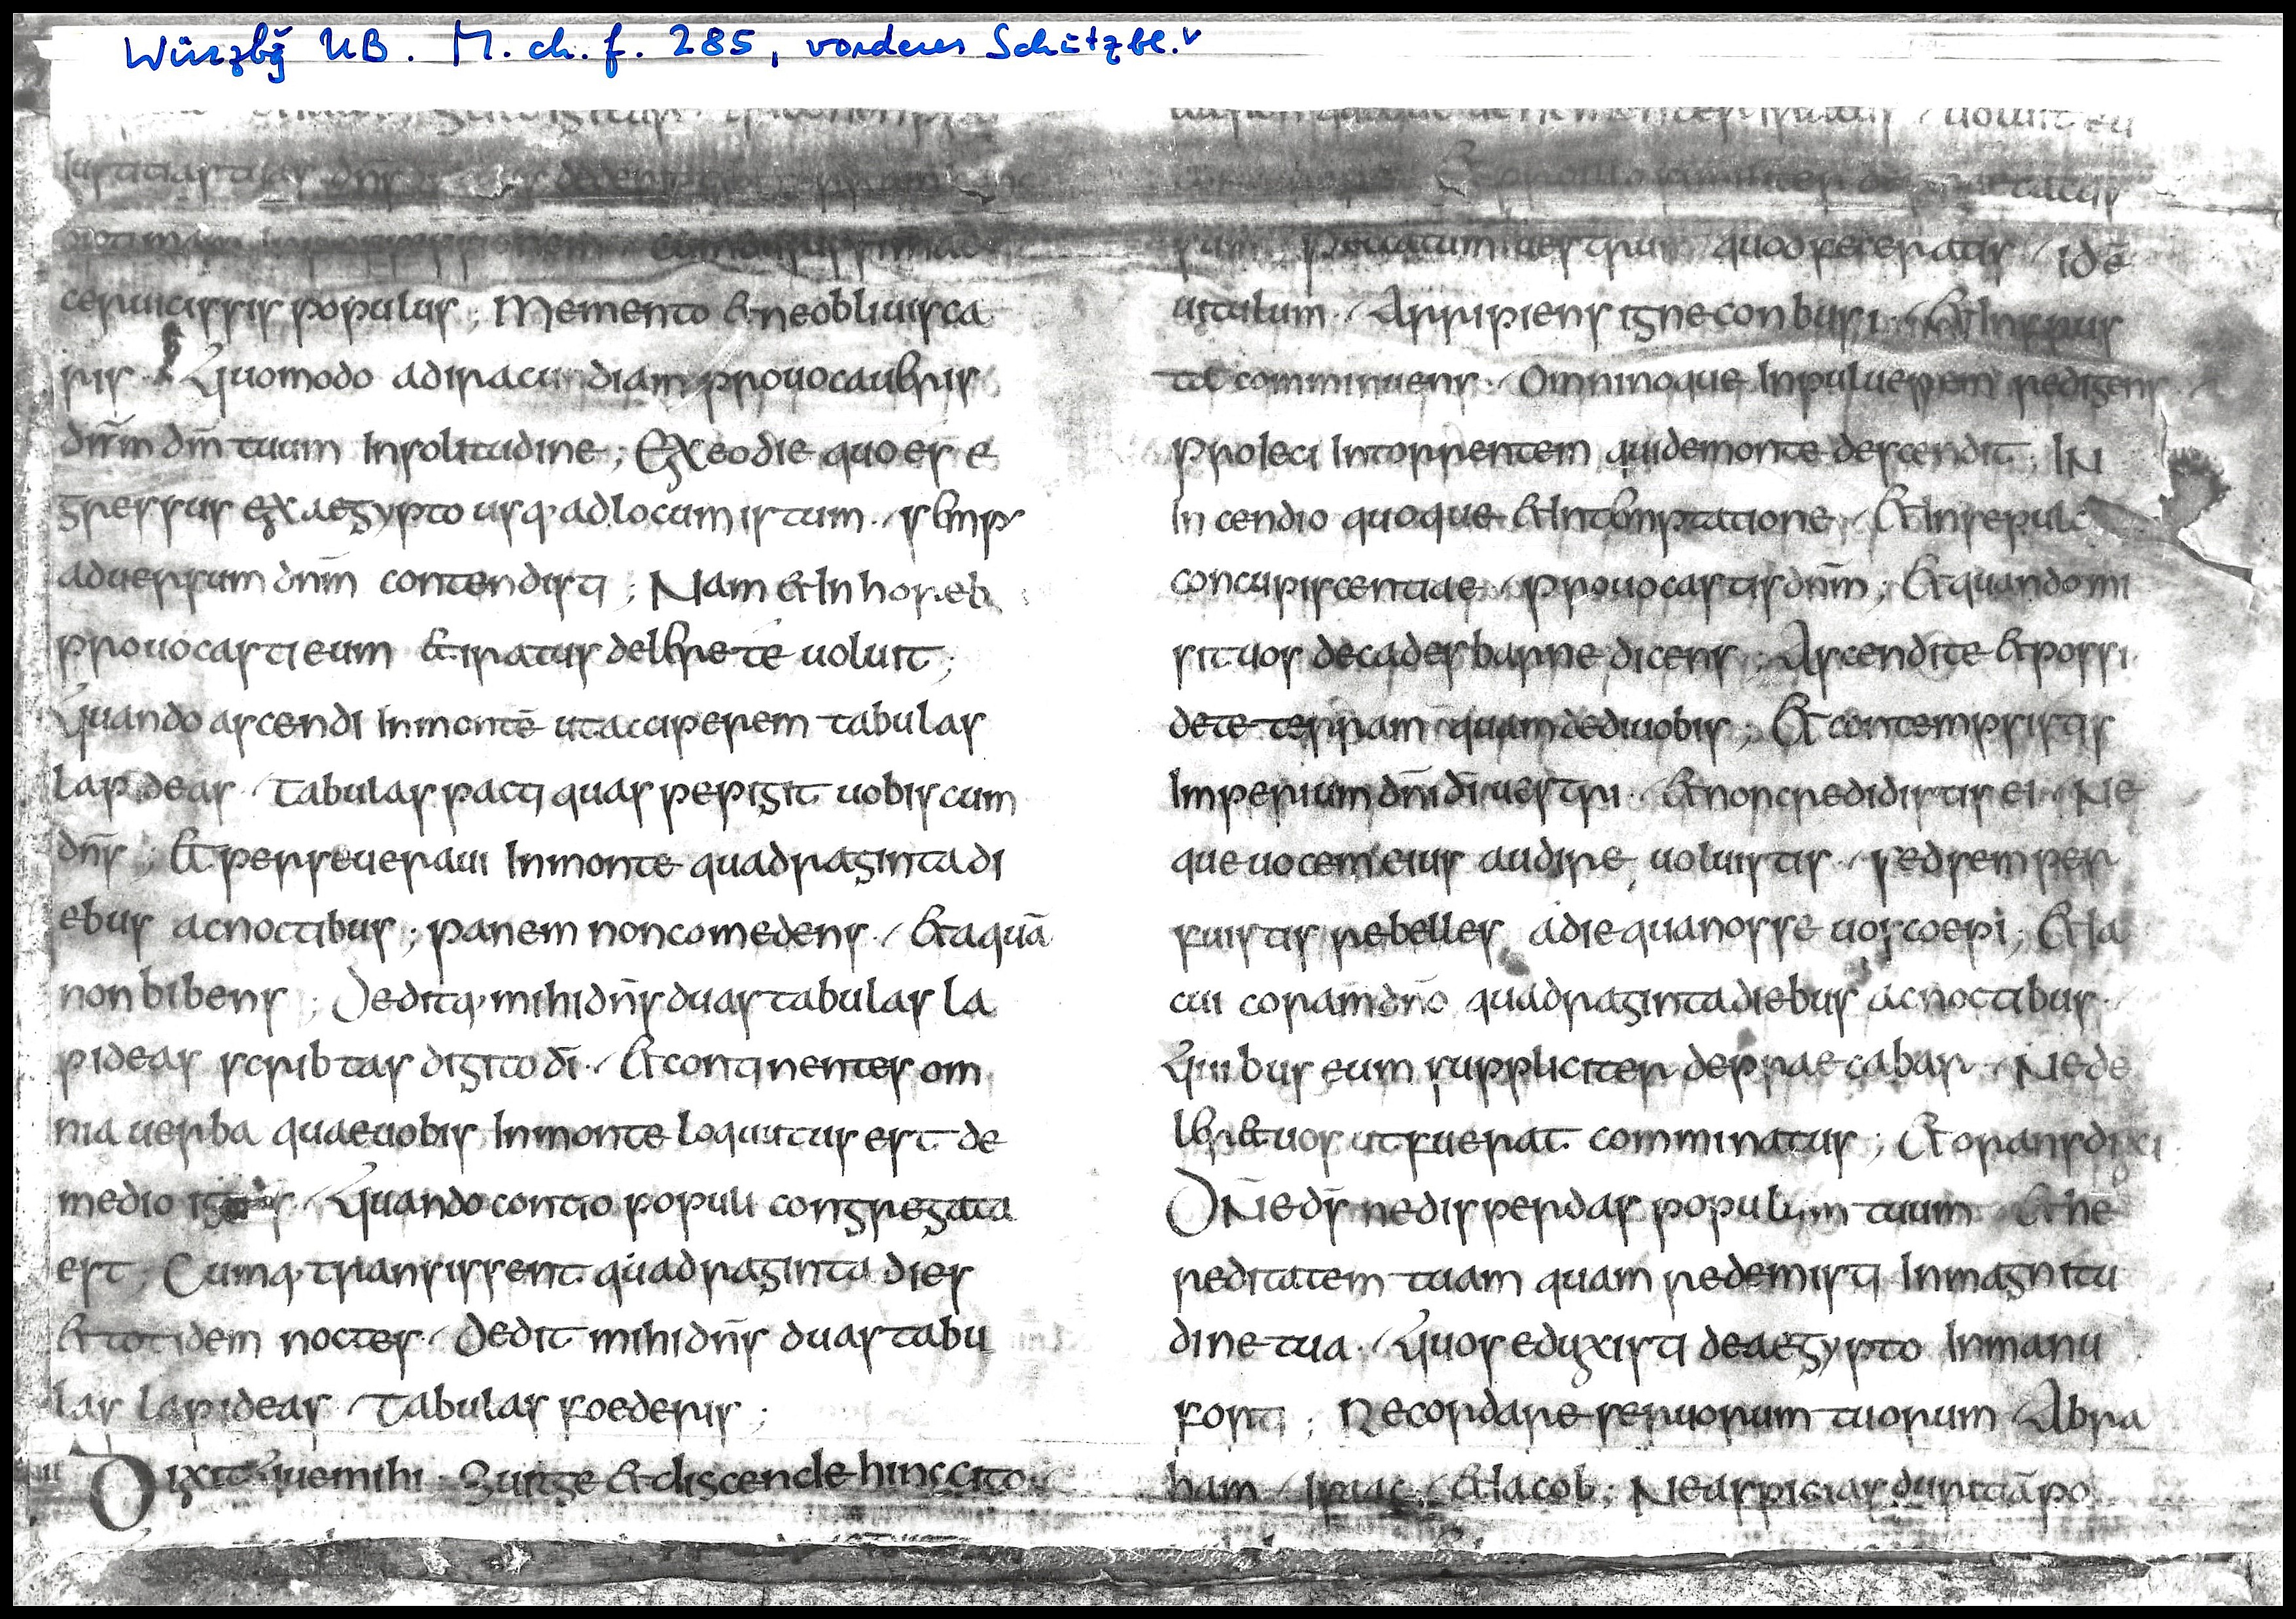 Würzbg UB. M. ch. f. 285, vorderes Schutzbl. v
iustitias tuas dn̄s
cum durissimae
ceruicissis populus; Memento & ne obliuisca
ris. Quomodo ad iracundiam prouocaueris
dn̄m dm̄ tuum In solitudine; Ex eo die quo es e
gressus ex aegypto usq· ad locum istum. semp
aduersum dnm̄ contendisti; Nam & In horeb
prouocasti eum & iratus delere te uoluit;
Quando ascendi In montē ut acciperem tabulas
lapideas tabulas pacti quas pepigit uobiscum
dn̄s; & perseueraui In monte quadraginta di
ebus ac noctibus; panem non comedens & aquā
non bibens; Deditq· mihi dn̄s duas tabulas la
pideas scribtas digito dī. & continentes om
nia uerba quae uobis In monte loqutus est de
medio ignis. Quando contio populi congregata
est; Cumq· transissent quadraginta dies
& totidem noctes. Dedit mihi dn̄s duas tabu
las lapideas tabulas foederis;
Dixit que mihi. Surge & discende hinc cito
uoluit eu
peccatum uestrum quod feceratis idē
uitulum. Arripiens igne conbusi. & In frus
ta comminuens. Omninoque In puluerem redigens
proieci In torrentem qui de monte descendit; IN
In cendio quoque & In temptatione, & In sepulc
concupiscentiae prouocastis dnm̄; & quando mi
sit uos de cades barne dicens; Ascendite & possi
dete terram quam dedi uobis; & contempsistis
Imperium dn̄i dī uestri. & non credidistis ei. Ne
que uocem eius audire uoluistis. sed semper
fuistis rebelles a die qua nosse uos coepi; & Ia
cui coram dn̄o quadraginta diebus ac noctibus.
Quibus eum suppliciter deprae cabar. Ne de
ler& uos ut fuerat comminatus; & orans dixi
DNe ds̄ ne disperdas populum tuum & he
reditatem tuam quam redemisti In magnitu
dine tua. Quos eduxisti de aegypto In manu
forti; Recordare seruorum tuorum Abra
ham Isaac & Iacob; Ne aspicias duritiā po